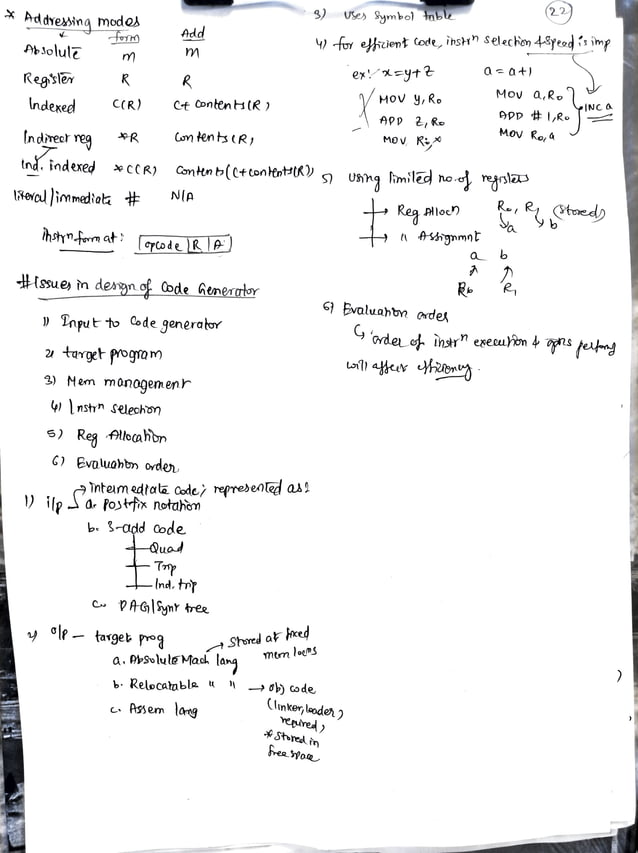 * Addressing modes
form Add
Absolute m m
Register R R
Indexed C(R) C+contents(R)
Indirect reg *R Contents(R)
Ind. indexed *C(R) Contents(C+contents(R))
literal/immediate # N/A
Instrn format: opcode | R | A
# Issues in design of Code Generator
1) Input to Code generator
2) target program
3) Mem management
4) Instrn selection
5) Reg Allocation
6) Evaluation order
→ intermediate code; represented as:
1) i/p a. Postfix notation
b. 3-add code
Quad
Trip
Ind. trip
c. DAG/Synt tree
2) o/p – target prog
a. Absolute Mach lang → Stored at fixed mem locns
b. Relocatable " " → obj code
(linker, loader required,
* stored in
free space
c. Assem lang
22
3) Uses Symbol table
4) for efficient code, instrn selection & speed is imp
ex: x=y+z a=a+1
MOV y,R0 MOV a,R0
ADD z,R0 ADD #1,R0 INC a
MOV R0,x MOV R0,a
5) Using limited no. of registers
Reg Allocn R0, R1 (stored)
a b
" Assignmnt
a b
R0 R1
6) Evaluation order
↳ order of instrn execution & opns
will affect efficiency.